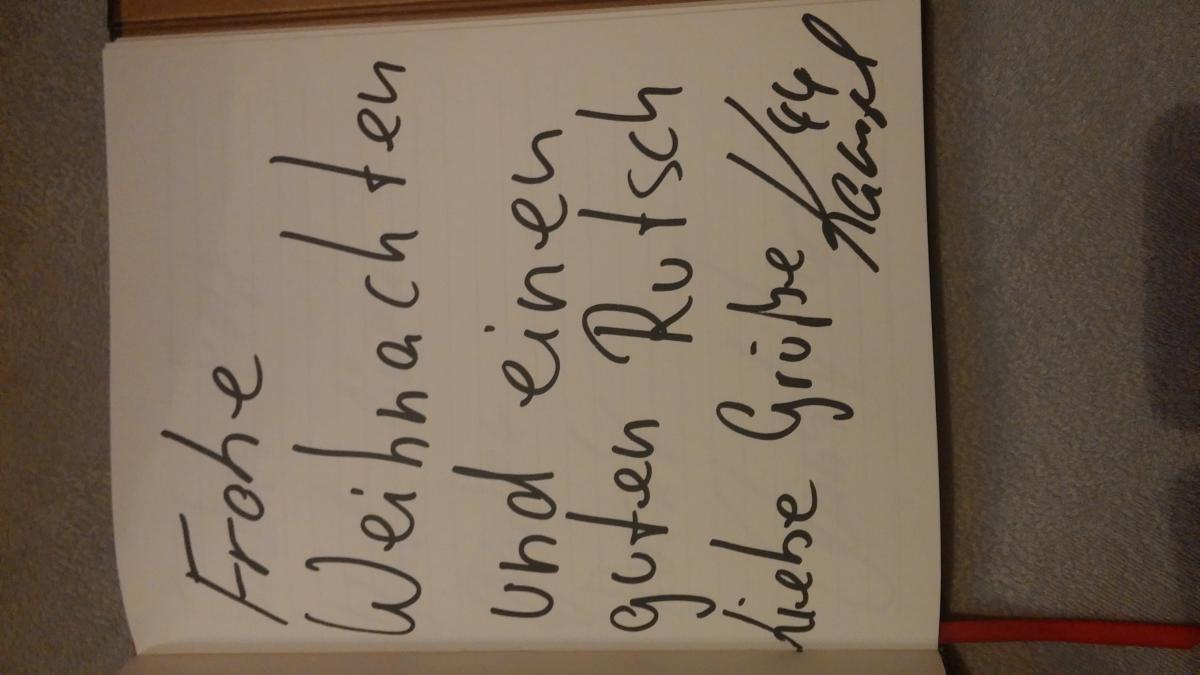 Frohe
Weihnachten
und einen
guten Rutsch
Liebe Grüße